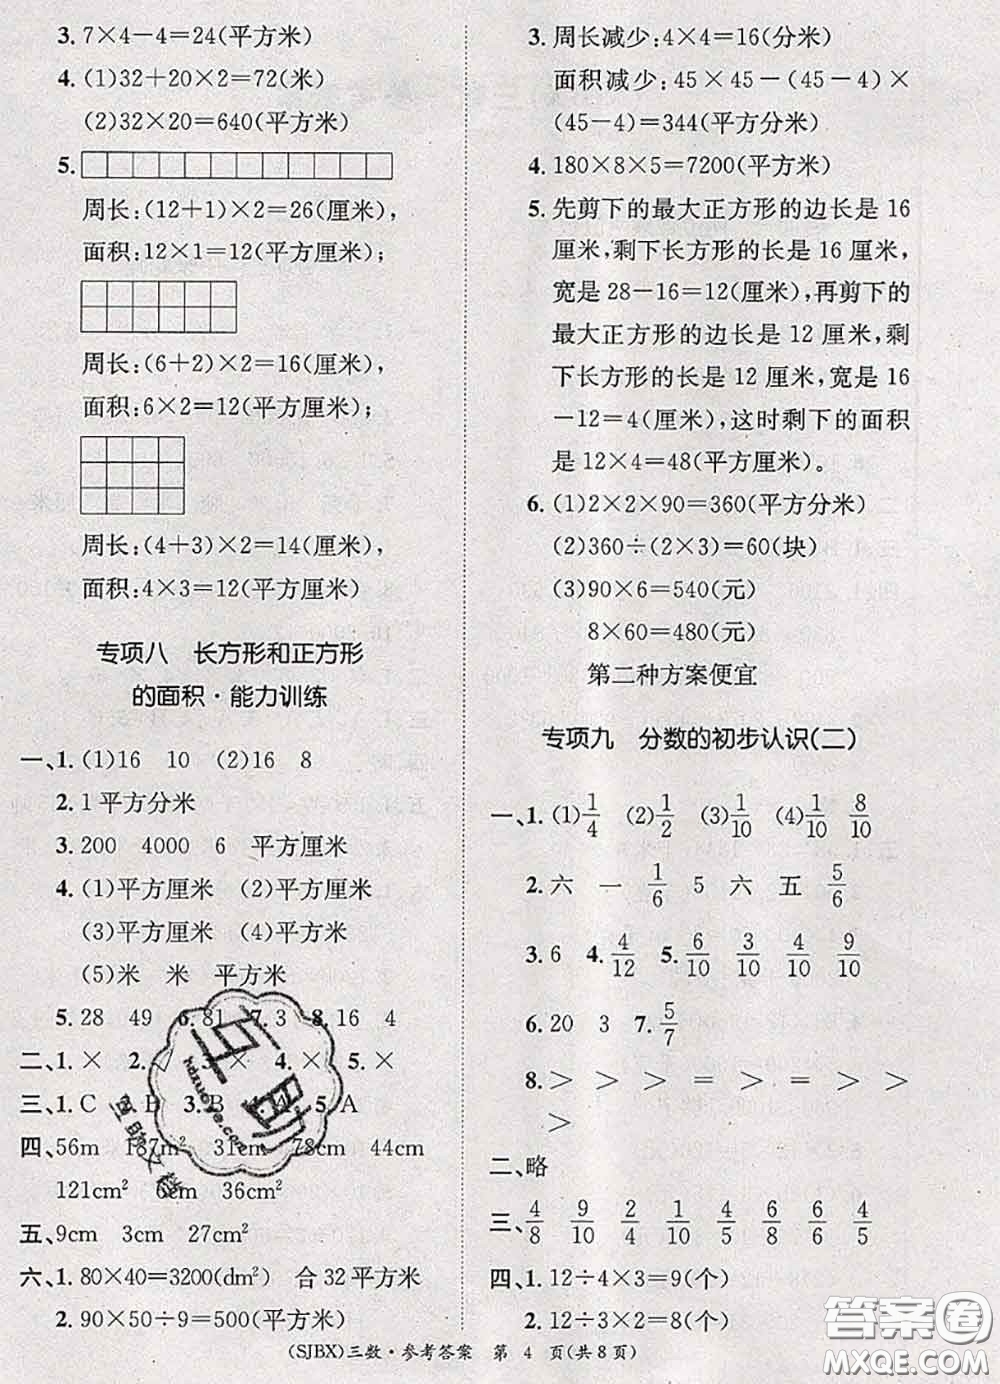 3. 7×4-4=24(平方米)
4. (1)32+20×2=72(米)
(2)32×20=640(平方米)
5.
周长:(12+1)×2=26(厘米),
面积:12×1=12(平方厘米);
周长:(6+2)×2=16(厘米),
面积:6×2=12(平方厘米);
周长:(4+3)×2=14(厘米),
面积:4×3=12(平方厘米)
专项八 长方形和正方形
的面积·能力训练
一、1. (1)16 10 (2)16 8
2. 1平方分米
3. 200 4000 6 平方厘米
4. (1)平方厘米 (2)平方厘米
(3)平方厘米 (4)平方米
(5)米 米 平方米
5. 28 49 6. 81 7. 3 8. 16 4
二、1. × 2. √ 3. × 4. × 5. ×
三、1. C 2. D 3. B 4. A 5. A
四、56m 187m² 31cm 78cm 44cm
121cm² 6cm 36cm²
五、9cm 3cm 27cm²
六、1. 80×40=3200(dm²) 合32平方米
2. 90×50÷9=500(平方米)
3. 周长减少:4×4=16(分米)
面积减少:45×45-(45-4)×
(45-4)=344(平方分米)
4. 180×8×5=7200(平方米)
5. 先剪下的最大正方形的边长是16
厘米,剩下长方形的长是16厘米,
宽是28-16=12(厘米),再剪下的
最大正方形的边长是12厘米,剩
下长方形的长是12厘米,宽是16
-12=4(厘米),这时剩下的面积
是12×4=48(平方厘米)。
6. (1)2×2×90=360(平方分米)
(2)360÷(2×3)=60(块)
(3)90×6=540(元)
8×60=480(元)
第二种方案便宜
专项九 分数的初步认识(二)
一、1. (1)1/4 (2)1/2 (3)1/10 (4)1/10 8/10
2. 六 一 1/6 5 六 五 5/6
3. 6 4. 4/12 5. 6/10 3/10 4/10 9/10
6. 20 3 7. 5/7
8. > > > = > = > >
>
二、略
三、4/8 9/10 2/4 1/10 7/8 6/8 6/6 4/5
四、1. 12÷4×3=9(个)
2. 12÷3×2=8(个)
(SJBX)三数·参考答案 第 4 页(共8页)
答案圈
MXQE.COM